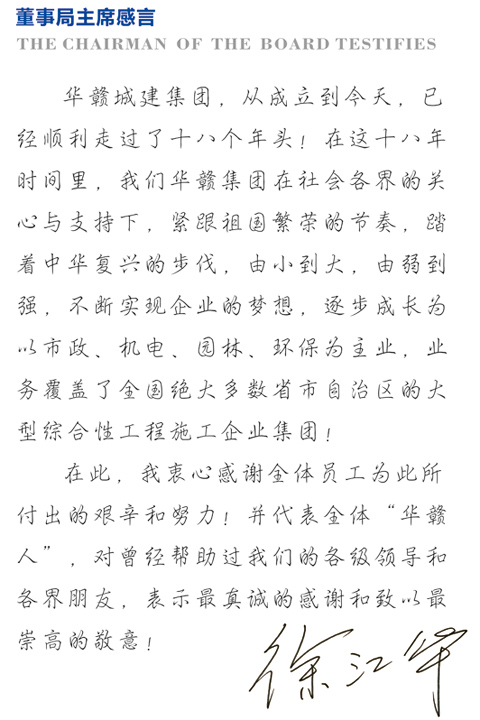 董事局主席感言
THE CHAIRMAN OF THE BOARD TESTIFIES
华赣城建集团，从成立到今天，已
经顺利走过了十八个年头！在这十八年
时间里，我们华赣集团在社会各界的关
心与支持下，紧跟祖国繁荣的节奏，踏
着中华复兴的步伐，由小到大，由弱到
强，不断实现企业的梦想，逐步成长为
以市政、机电、园林、环保为主业，业
务覆盖了全国绝大多数省市自治区的大
型综合性工程施工企业集团！
在此，我衷心感谢全体员工为此所
付出的艰辛和努力！并代表全体“华赣
人”，对曾经帮助过我们的各级领导和
各界朋友，表示最真诚的感谢和致以最
崇高的敬意！
徐江华